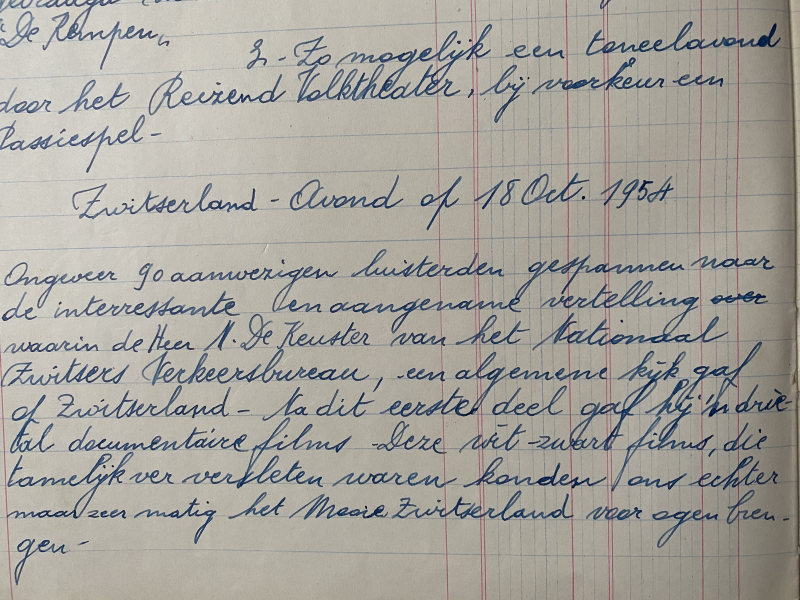 "De Kempen"
3.- Zo mogelijk een toneelavond
door het Reizend Volktheater, bij voorkeur een
Passiespel -
Zwitserland - Avond op 18 Oct. 1954
Ongeveer 90 aanwezigen luisterden gespannen naar
de interressante en aangename vertelling over
waarin de Heer N. De Keuster van het Nationaal
Zwitsers Verkeersbureau, een algemene kijk gaf
op Zwitserland - Na dit eerste deel gaf hij 'n drie-
tal documentaire films - Deze wit-zwart films, die
tamelijk ver versleten waren konden ons echter
maar zeer matig het Mooie Zwitserland voor ogen bren-
gen -